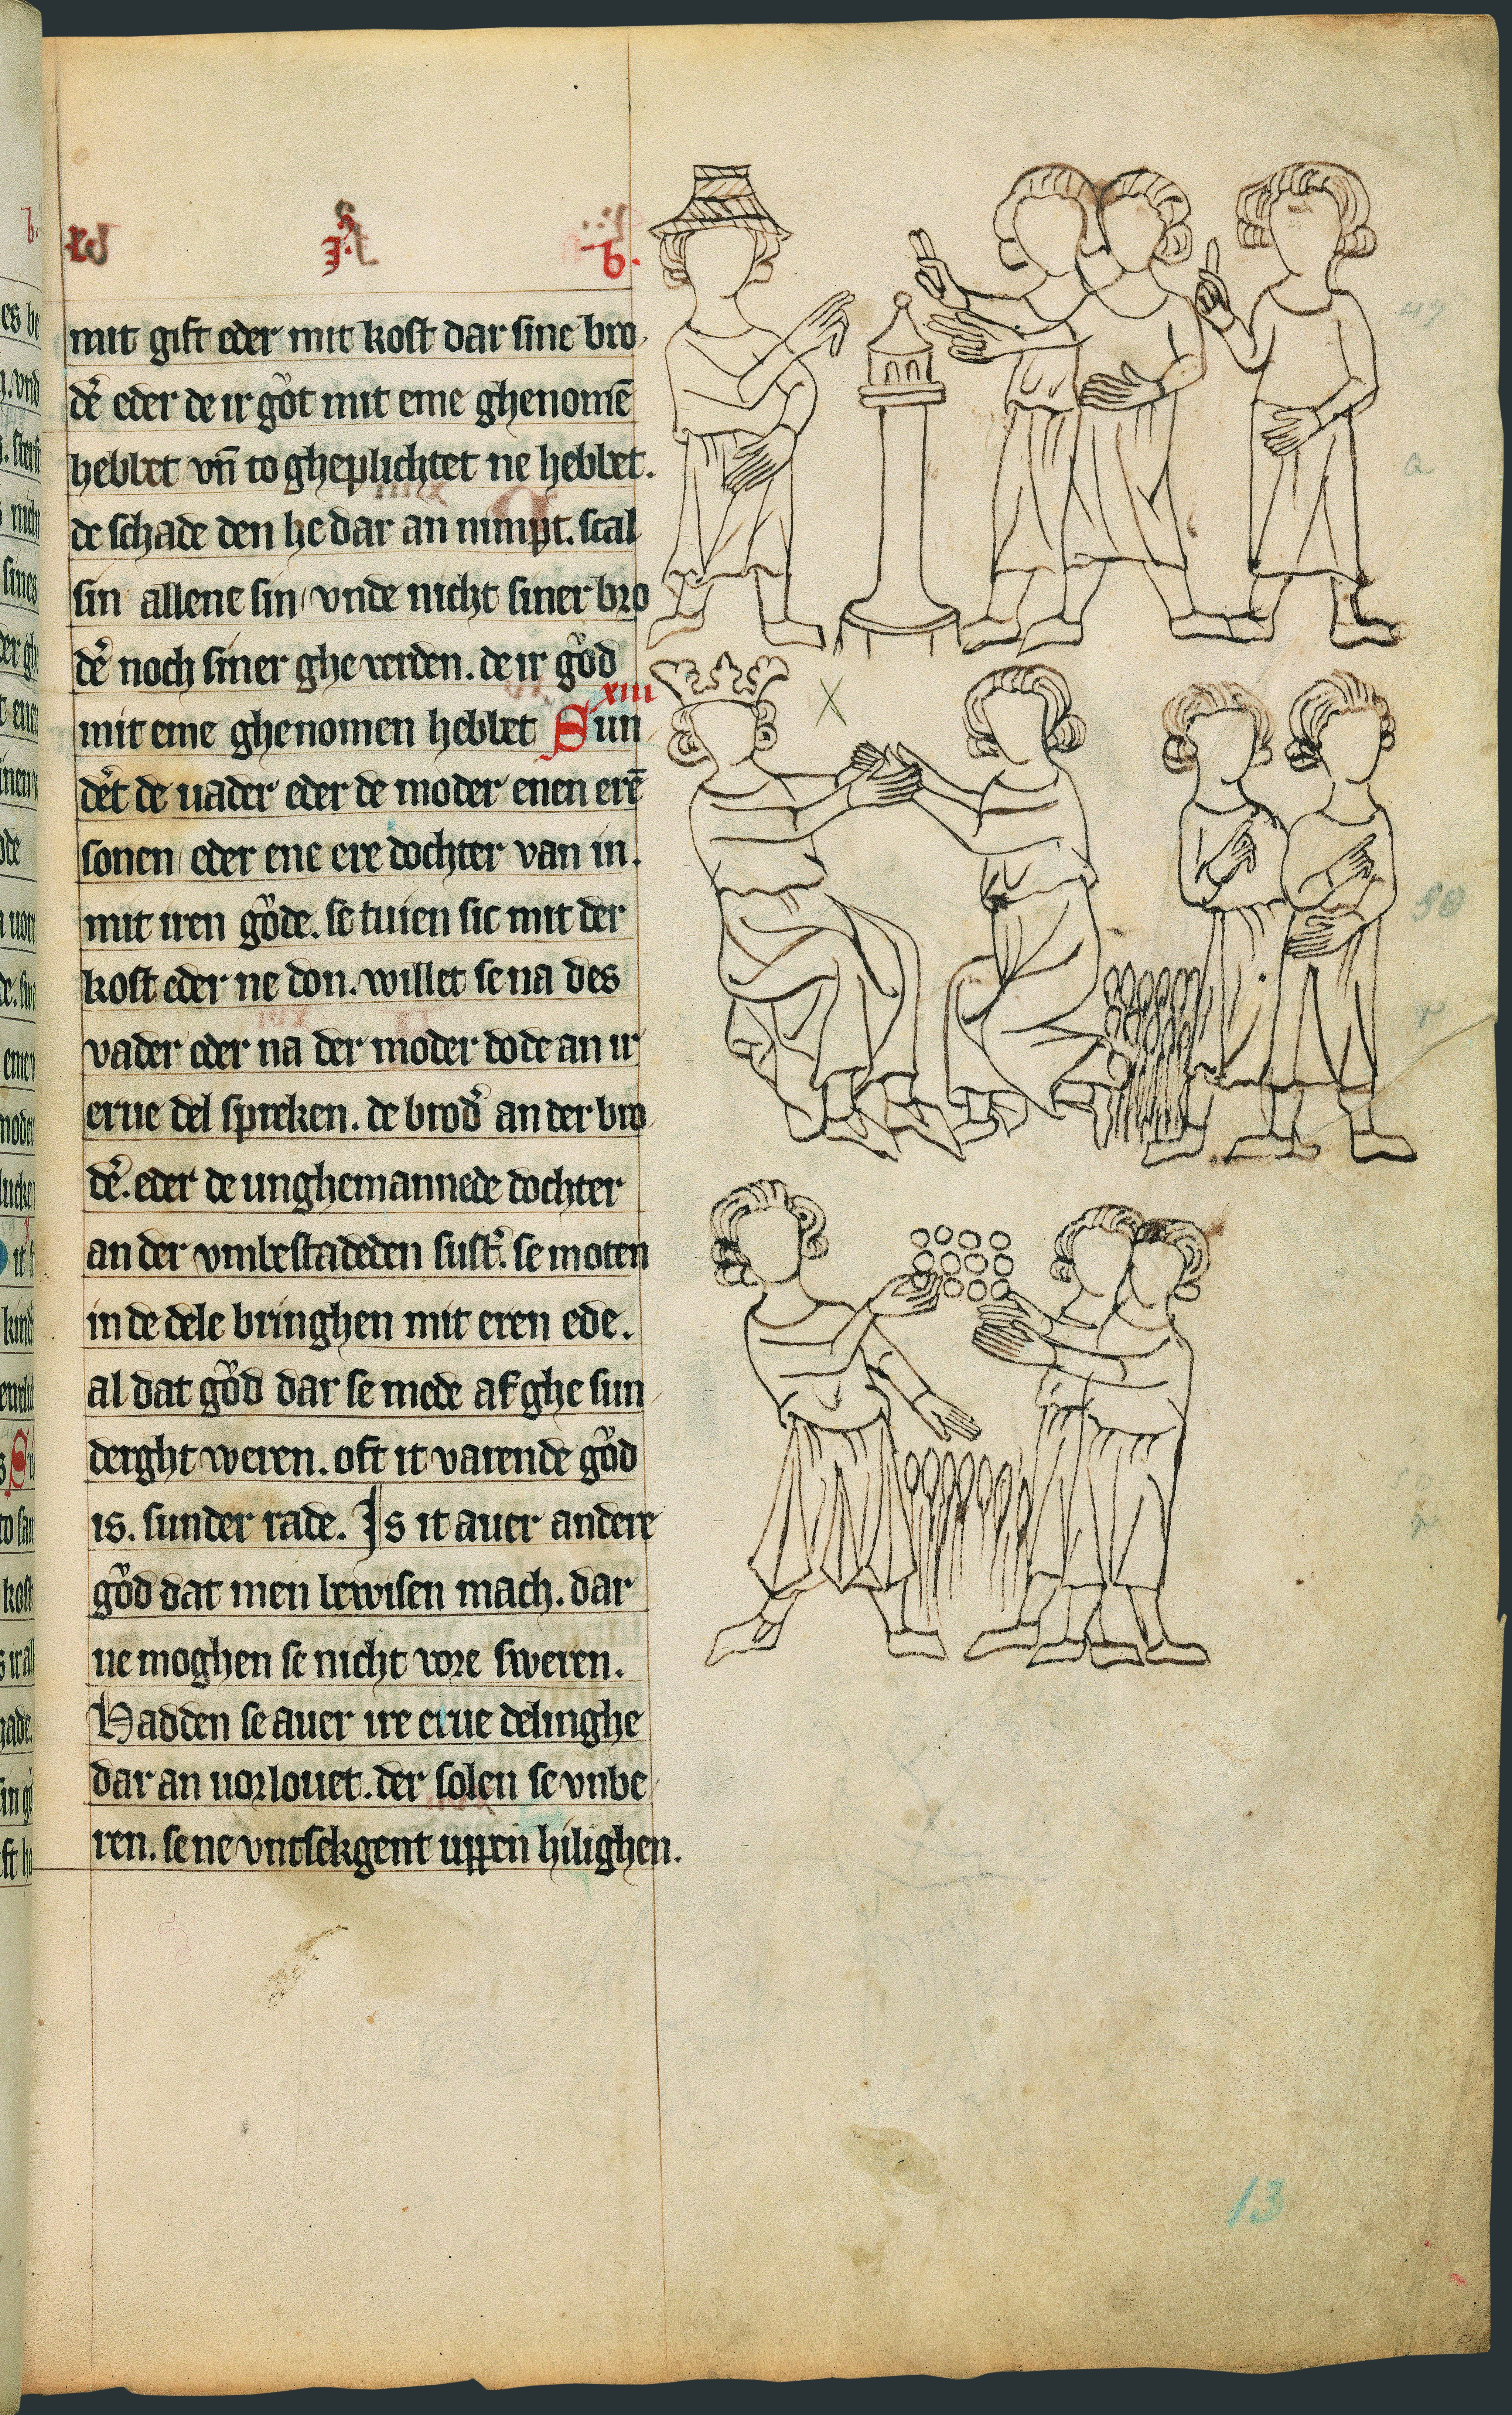 b.
mit gift eder mit kost dar sine bro
der̄ eder de ir gůt mit eme ghenomē
hebbet vn̄ to gheplichtet ne hebbet.
de schade den he dar an nimpt. scal
sin allene sin vnde nicht siner bro
der̄ noch siner gheuerden. de ir gůd
xiii
mit eme ghenomen hebbet Sun
der̄t de uader eder de moder enen erē
sonen eder ene ere dochter van in.
mit iren gůde. se tuien sic mit der
kost eder ne don. willet se na des
vader eder na der moder dode an ir
erue del spreken. de brod̄ an der bro
der̄. eder de unghemannede dochter
an der vmbestadeden sust̄. se moten
in de dele bringhen mit eren ede.
al dat gůd dar se mede af ghe sun
derght weren. oft it varende gůd
is. sunder rade. Is it auer andere
gůd dat men bewisen mach. dar
ne moghen se nicht vore sweren.
Hadden se auer ire erue delinghe
dar an uorlouet. der solen se vnbe
ren. se ne vntsekgent uppen hilighen.
13